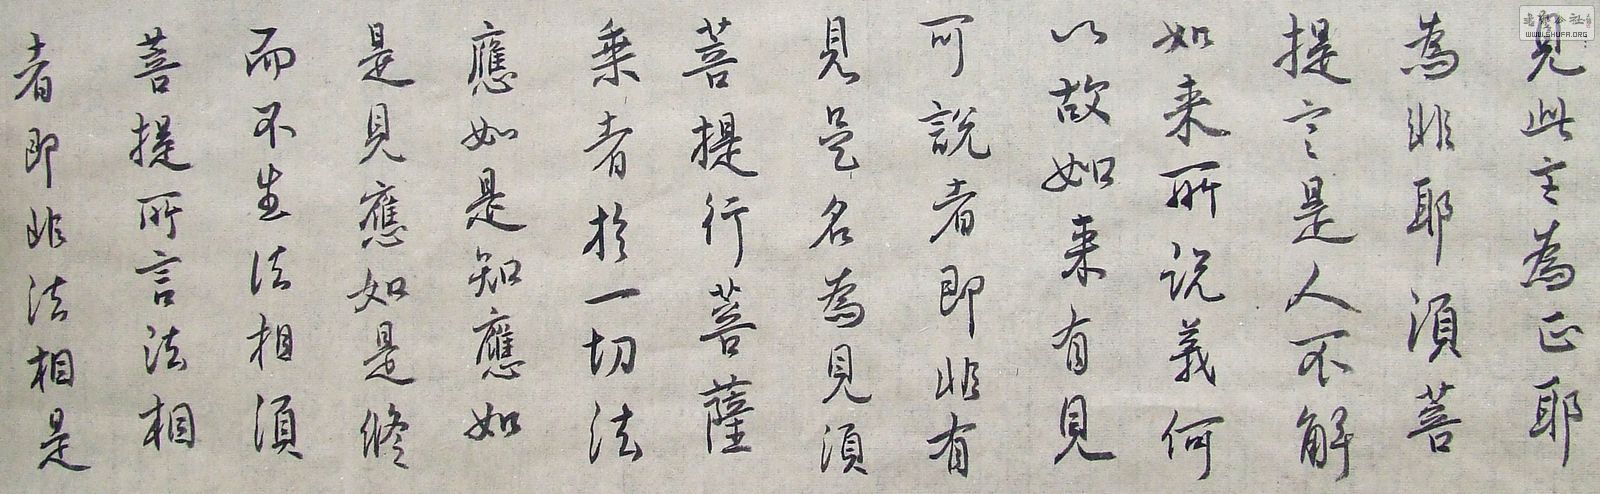 見此主為正耶
為非耶須菩
提言是人不解
如来所说義何
以故如来有見
可說者即非有
見是名為見須
菩提行菩薩
乘者於一切法
應如是知應如
是見應如是修
而不生法相須
菩提所言法相
者即非法相是
WWW.SHUFA.ORG